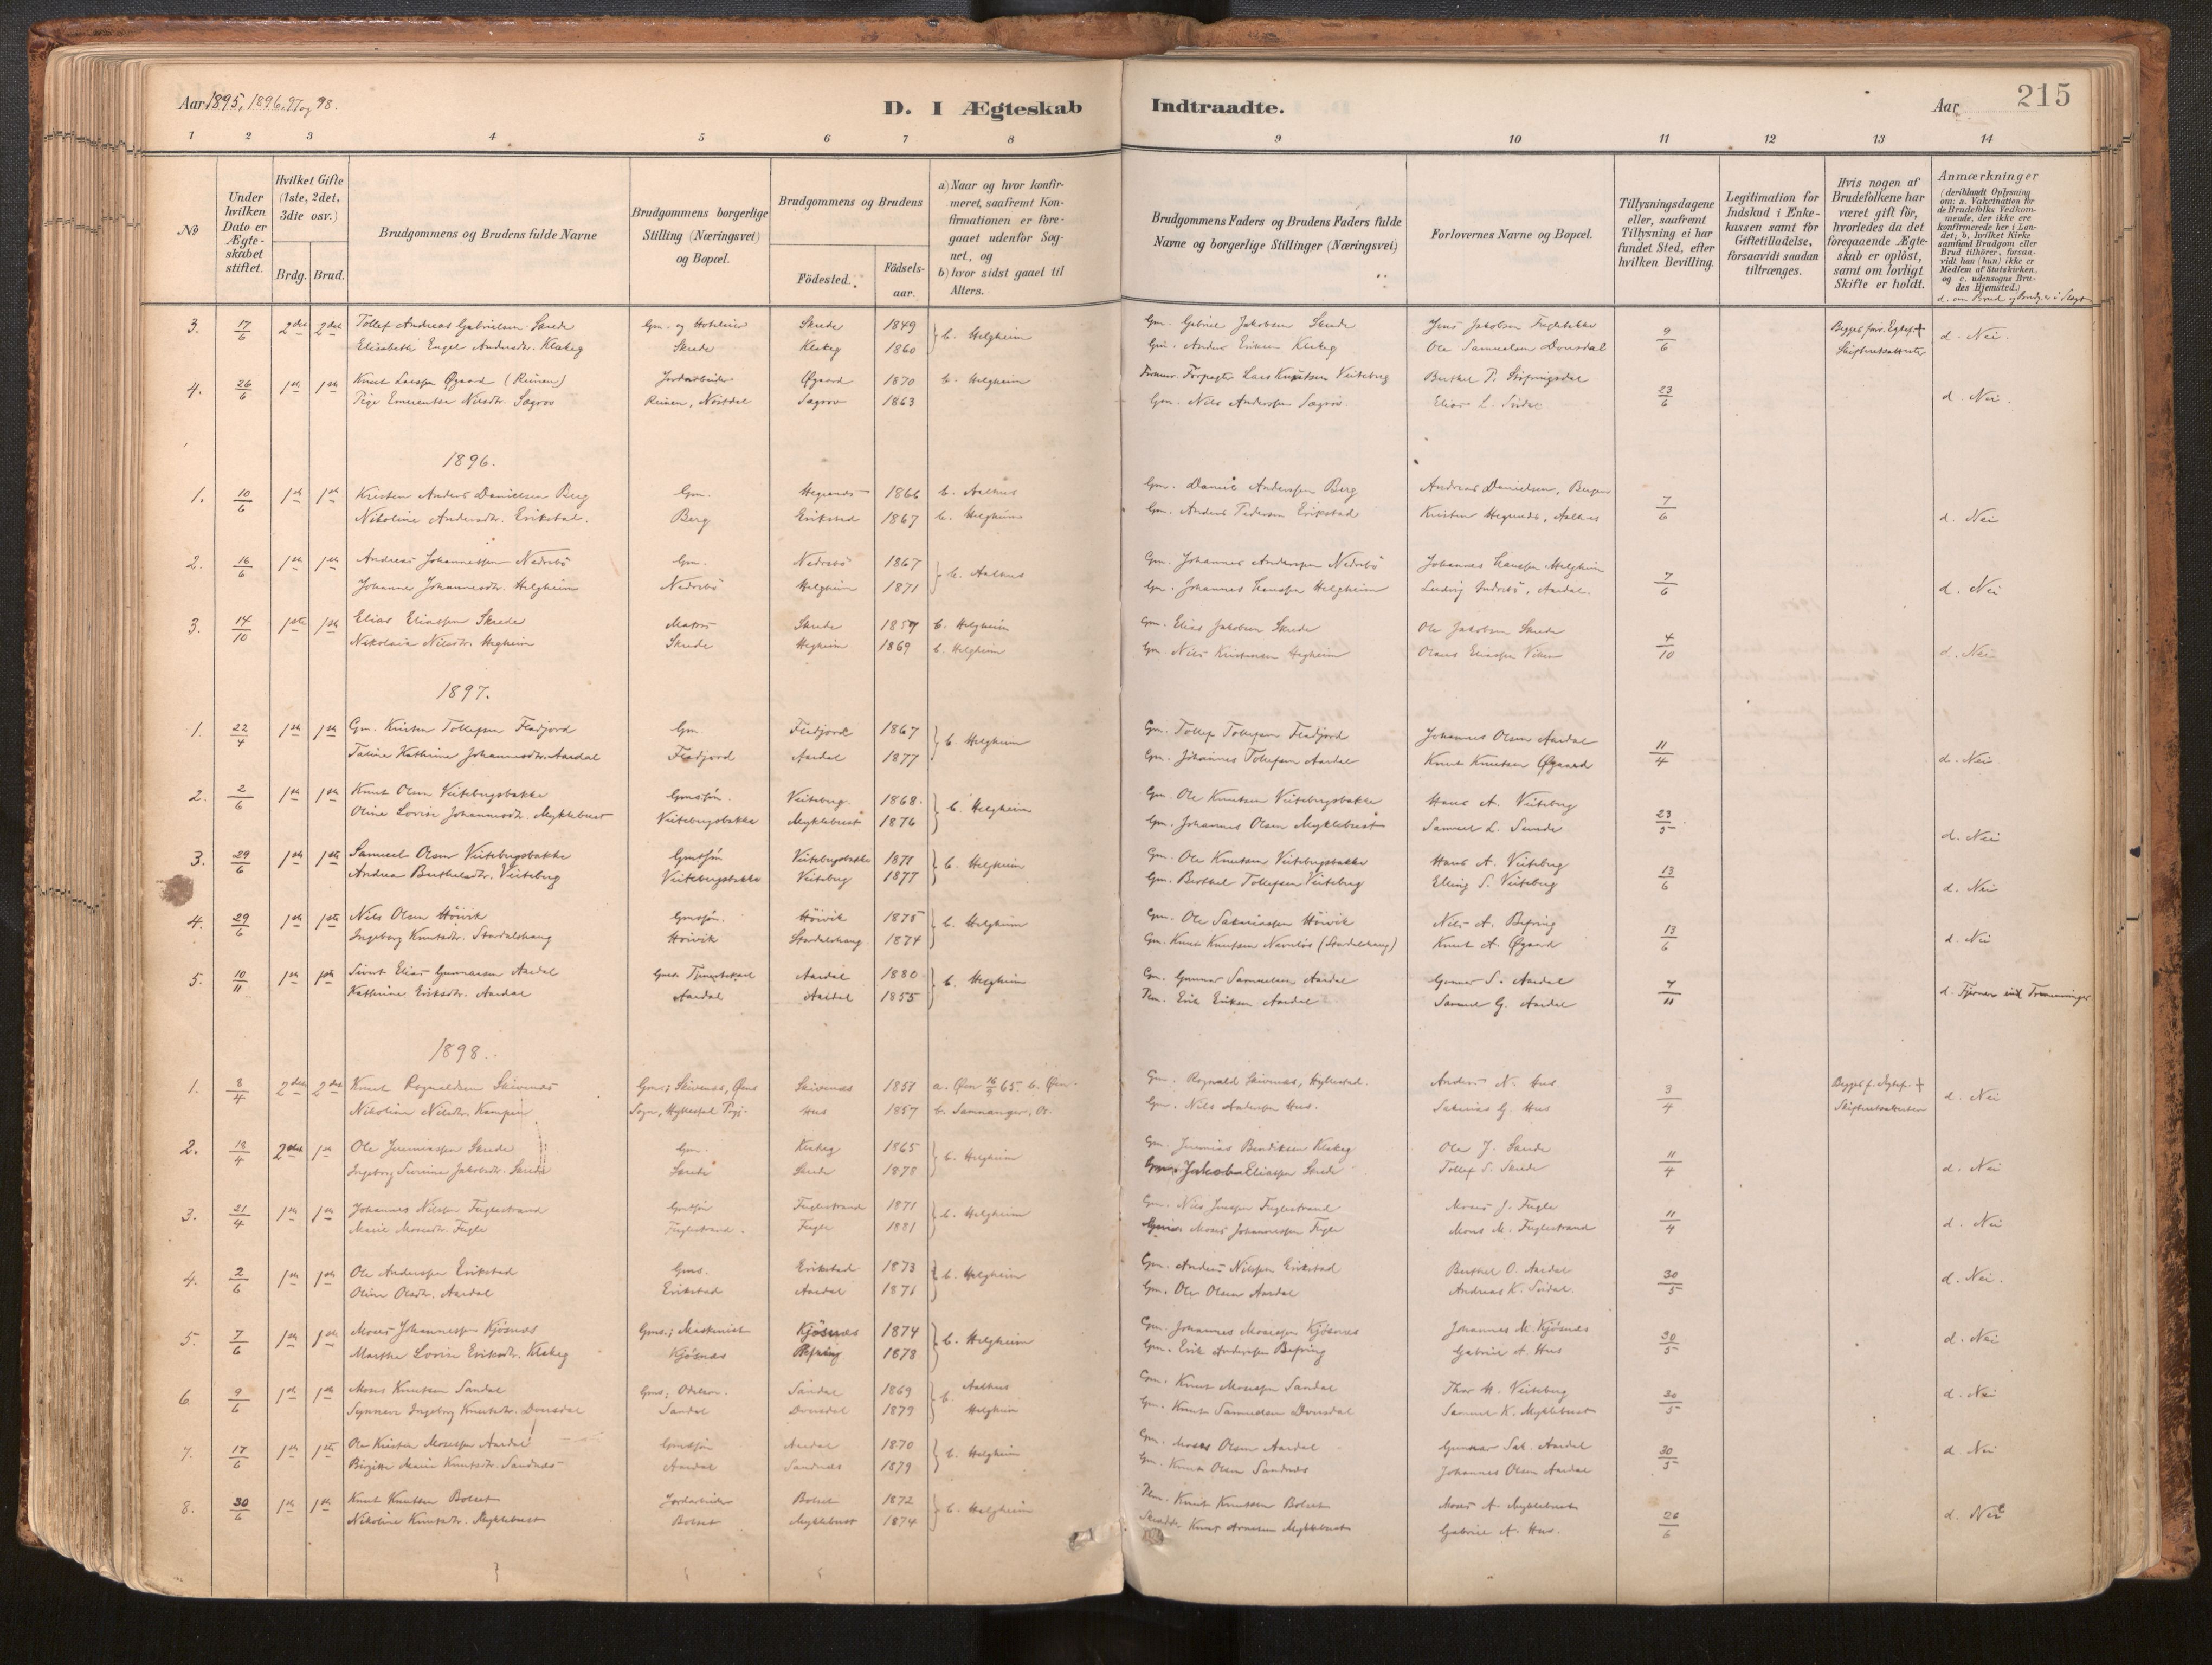 Aar 1895, 1896, 97 og 98.
D. I Ægteskab Indtraadte.
Aar 215
1 2 3 4 5 6 7 8 9 10 11 12 13 14
No
Under hvilken Dato er Ægteskabet stiftet.
Hvilket Gifte (1ste, 2det, 3die osv.)
Brdg. Brud.
Brudgommens og Brudens fulde Navne
Brudgommens borgerlige Stilling (Næringsvei) og Bopæl.
Brudgommens og Brudens
Fødested.
Fødselsaar.
a) Naar og hvor konfirmeret, saafremt Konfirmationen er foregaaet udenfor Sognet, og
b) hvor sidst gaaet til Alters.
Brudgommens Faders og Brudens Faders fulde Navne og borgerlige Stillinger (Næringsvei)
Forlovernes Navne og Bopæl.
Tillysningsdagene eller, saafremt Tillysning ei har fundet Sted, efter hvilken Bevilling.
Legitimation for Indskud i Enkekassen samt for Giftetilladelse, forsaavidt saadan tiltrænges.
Hvis nogen af Brudefolkene har været gift før, hvorledes da det foregaaende Ægteskab er opløst, samt om lovligt Skifte er holdt.
Anmærkninger
(deriblandt Oplysning om: a. Vakcination for de Brudefolks Vedkommende, der ikke ere konfirmerede her i Landet; b. hvilket Kirkesamfund Brudgom eller Brud tilhører, forsaavidt han (hun) ikke er Medlem af Statskirken, og c. udensogns Brudes Hjemsted.)
3. 17/6 2det 2det Tollef Andreas Gabrielsen Skrede Gm. og Hotelier Skrede 1849 b. Helgheim Gm. Gabriel Jakobsen Skrede Jens Jakobsen 9/6 d. Nei.
Elisabeth Engel Andersdtr. Klakeg Skrede Klakeg 1860 Gm. Anders Eriksen Klakeg Ole Samuelsen Dvusdal
4. 26/6 1ste 1ste Knut Larssen Øgaard (Reinen) Jordarbeider Øgaard 1870 b. Helgheim Lars Knutsen Veiteberg 23/6 d. Nei.
Pige Emerentse Nilsdtr. Søgrov Søgrov 1863 Gm. Nils Anderssen Søgrov
1896.
1. 10/6 1ste 1ste Kristen Anders Danielsen Berg Gm. 1866 b. Aalhus Gm. Daniel Anderssen Berg Andreas Danielsen, Bergen 7/6
Nikoline Andersdtr. Erikstad. Berg Erikstad 1867 b. Helgheim Gm. Anders Pedersen Erikstad Kristen Aalhus d. Nei
2. 16/6 1ste 1ste Andreas Johannessen Nedrebö Gm. Nedrebö 1867 b. Aalhus Gm. Johannes Anderssen Nedrebö Johannes Hanssen Helgheim 7/6
Johanne Johannesdtr. Helgheim Nedrebö Helgheim 1871 Gm. Johannes Hanssen Helgheim Ludvig d. Nei
3. 14/10 1ste 1ste Elias Eliassen Skrede Skrede b. Helgheim Gm. Elias Jakobsen Skrede Ole Jakobsen Skrede 4/10
Nikolaia Nilsdtr. Hegheim Skrede Hegheim 1869 b. Helgheim Gm. Nils Kristensen Hegheim d. Nei
1897.
1. 22/4 1ste 1ste Gm. Kristen Tollefsen Fladjord Gm. Fladjord 1867 b. Helgheim Gm. Tollef Tollefsen Fladjord Johannes Olsen Aardal 11/4
Taline Kathrine Johannesdtr. Aardal Fladjord Aardal 1877 Gm. Johannes Tollefsen Aardal Knut Knutsen Øgaard d. Nei
2. 2/6 1ste 1ste Knut Olsen Veitebergsbakke Gmssøn. Veiteberg 1868. b. Helgheim Gm. Ole Knutsen Veitebergsbakke Hans A. Veiteberg 23/5
Oline Lovise Johannesdtr. Myklebust Veitebergsbakke Myklebust 1876 Gm. Johannes Olsen Myklebust Samuel L. d. Nei
3. 29/6 1ste 1ste Samuel Olsen Veitebergsbakke Gmssøn Veitebergsbakke 1871 b. Helgheim Gm. Ole Knutsen Veitebergsbakke Hans A. Veiteberg 13/6
Andrea Berthelsdtr. Veiteberg Veitebergsbakke Veiteberg 1877 Gm. Berthel Tollefsen Veiteberg Elling S. Veiteberg d. Nei
4. 29/6 1ste 1ste Nils Olsen Höivik Gmssøn. Höivik 1875 b. Helgheim Gm. Ole Sakariassen Höivik Nils A. Befring 13/6
Ingeborg Knutsdtr. Stardalshaug Höivik Stardalshaug 1874 Gm. Knut Knutsen (Stardalshaug) Knut A. Øgaard d. Nei
5. 10/11 1ste 1ste Sivert Elias Gunnarsen Aardal Aardal 1880 b. Helgheim Gm. Gunnar Samuelsen Aardal Gunnar S. Aardal
Kathrine Eriksdtr. Aardal Aardal Aardal 1855 Erik Eriksen Aardal Samuel G. Aardal d. Fjernere end Tremenninger
1898.
1. 8/4 2det 2det Knut Rognaldsen Skivenes Gm., Skivenes, Skivenes b. Gm. Rognald Skivenes, Hyllestad. Anders N. Hus 3/4 d. Nei
Nikoline Nilsdtr. Sogn, Hyllestad Prgj. Hus 1857 b. Samnanger, Gm. Nils Andersen Hus. Sakarias G. Hus
2. 18/4 2det 1ste Ole Jeremiassen Skrede Gm. Klakeg 1865 b. Helgheim Gm. Jeremias Bendiksen Klakeg Ole J. Skrede 11/4
Ingeborg Severine Jakobsdtr. Skrede Skrede Skrede 1878 Jakob Eliassen Skrede Tollef S. Skrede d. Nei
3. 21/4 1ste 1ste Johannes Nilssen Fuglestrand Gmssøn Fuglestrand 1871 b. Helgheim Gm. Nils Jenssen Fuglestrand Moses J. Fugle 11/4
Marie Mosesdtr. Fugle Fuglestrand. Fugle 1881 Moses Johannessen Fugle Mons M. Fuglestrand d. Nei
4. 2/6 1ste 1ste Ole Anderssen Erikstad Gms. Erikstad 1873 b. Helgheim Gm. Anders Nilssen Erikstad Berthel O. Aardal 30/5 d. Nei.
Oline Olsdtr. Aardal Erikstad Aardal 1871 Gm. Ole Olsen Aardal Andreas K. Seidal.
5. 7/6 1ste 1ste Moses Johannessen Kjösnes Gms.; Maskinist Kjösnes 1874 b. Helgheim Gm. Johannes Mosessen Kjösnes Johannes M. Kjösnes 30/5 d. Nei
Marthe Lovise Eriksdtr. Klakeg Kjösnes Befring 1878 Gm. Erik Anderssen Befring Gabriel A. Hus
6. 9/6 1ste 1ste Moses Knutsen Sandal Sandal 1869 b. Aalhus Gm. Knut Mosessen Sandal Thor H. Veiteberg 30/5 d. Nei
Synneve Ingeborg Knutsdtr. Dvusdal Sandal Dvusdal 1879 Helgheim Gm. Knut Samuelsen Dvusdal Samuel K. Myklebust
7. 17/6 1ste 1ste Ole Kristen Mosessen Aardal Gmssøn Aardal 1870 b. Helgheim Gm. Moses Olsen Aardal Gunnar Sal. Aardal 30/5 d. Nei
Birgitte Marie Knutsdtr. Sandnes Aardal Sandnes 1879 Gm. Knut Olsen Sandnes Johannes Olsen Aardal
8. 30/6 1ste 1ste Knut Knutsen Bolset Jordarbeider Bolset 1872 b. Helgheim Knut Knutssen Bolset Moses A. Myklebust 26/6 d. Nei
Nikoline Knutsdtr. Myklebust Bolset Myklebust 1874 Knut Arnesen Myklebust Gabriel A. Hus.